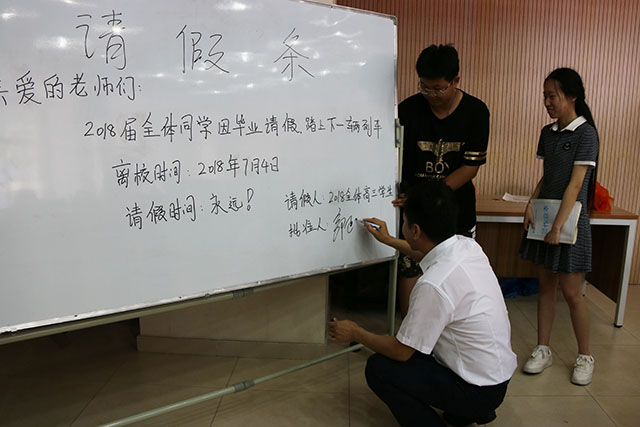 请假条
亲爱的老师们:
2018届全体同学因毕业请假,踏上下一车两列车
离校时间:2018年7月4日
请假时间:永远!
请假人:2018全体高三学生
批准人:
BOY